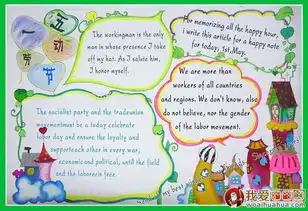 五
一
劳
动
节
The workingman is the only
man in whose presence I take
off my hat. As I salute him,
I honor myself.
For memorizing all the happy hour,
I write this article for a happy note
for today, 1st.May.
We are more than
workers of all countries
and regions. We don't know, also
do not believe, nor the gender
of the labor movement.
The socialist party and the tradeunion
maymentmust be a today celebrate
labor day and ensure the loyalty and
supporteach other in every war,
economic and political, until the field
and the laborerin free.
my best
我爱画画网
woaihuahua.com